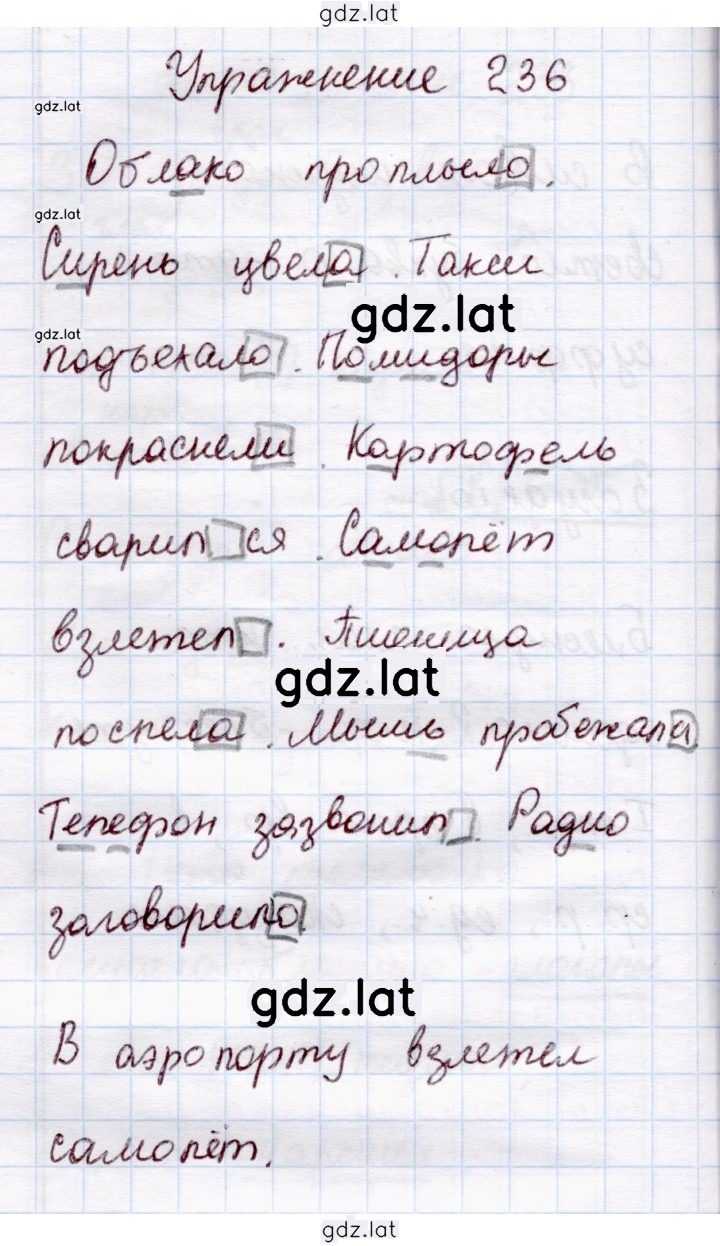 gdz.lat
Упражнение 236
gdz.lat
Облако проплыло.
gdz.lat
Сирень цвела. Такси
gdz.lat
gdz.lat
подъехало. Помидоры
покраснели. Картофель
сварился. Самолёт
взлетел. Пшеница
gdz.lat
поспела. Мышь пробежала.
Телефон зазвонил. Радио
заговорило.
gdz.lat
В аэропорту взлетел
самолёт.
gdz.lat